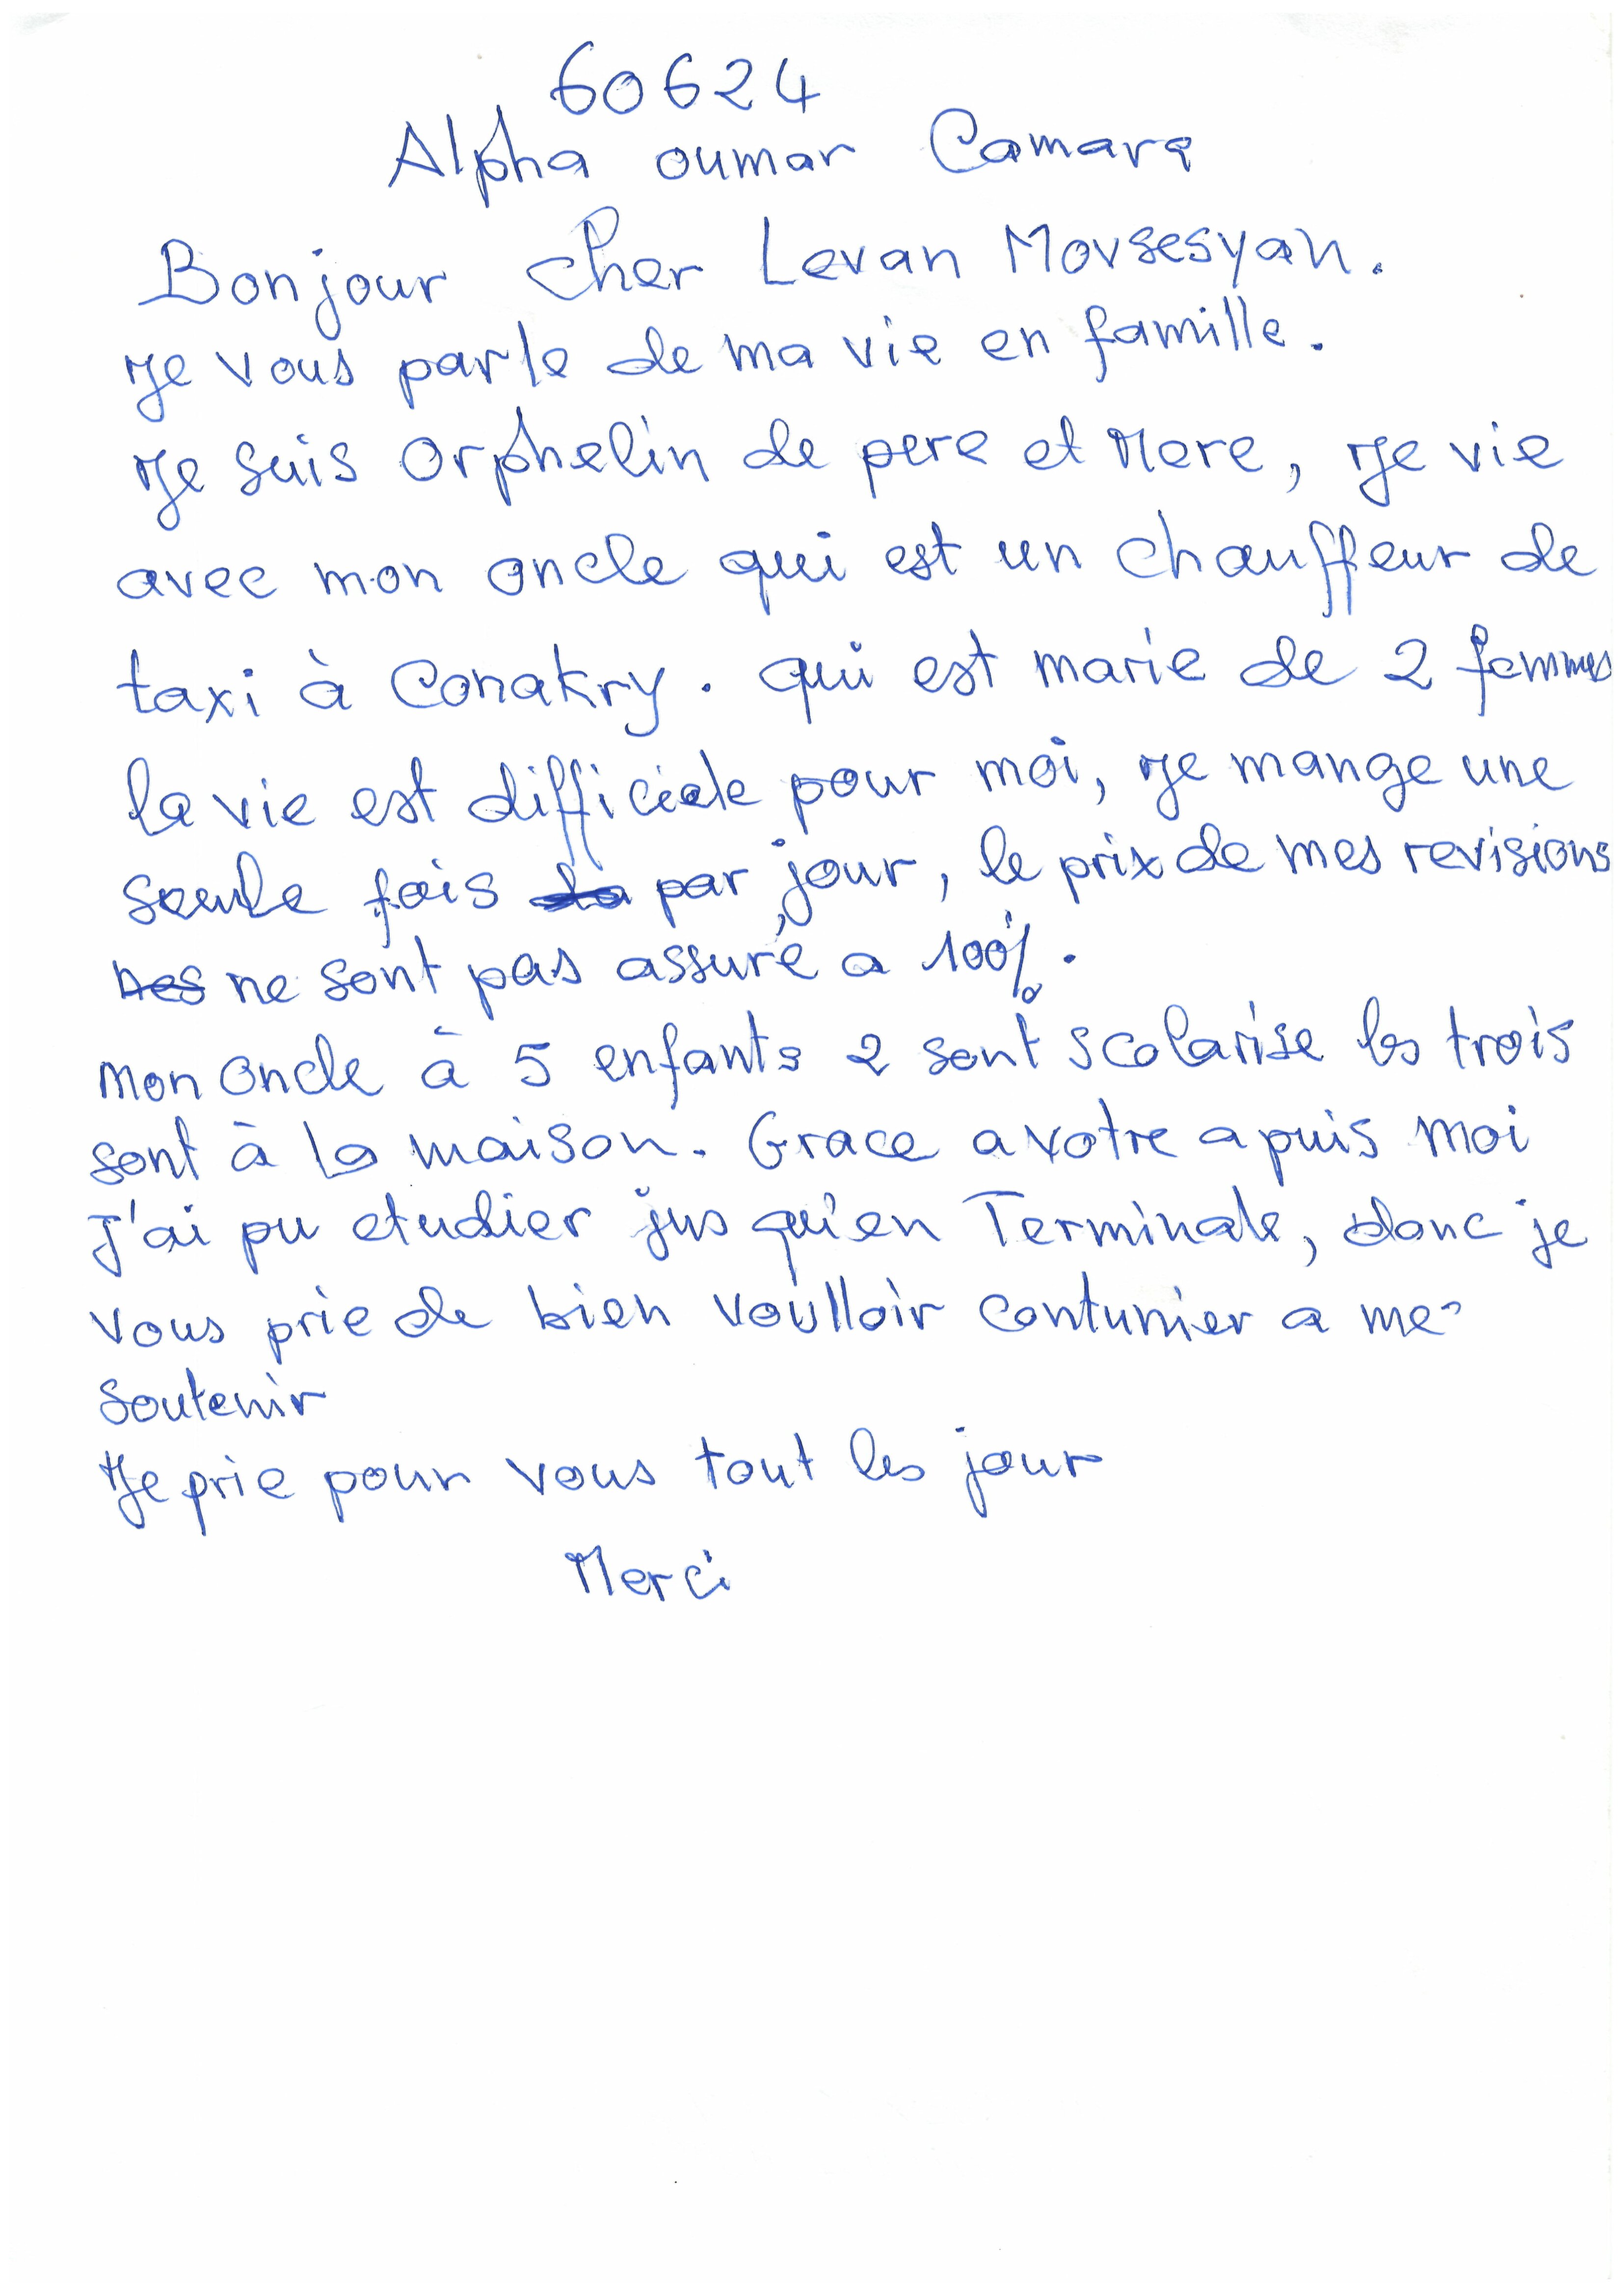 60624
Alpha oumar Camara
Bonjour cher Levan Movsesyan.
Je vous parle de ma vie en famille.
Je suis Orphelin de pere et Mere, Je vie
avec mon oncle qui est un chauffeur de
taxi à Conakry. qui est marie de 2 femmes
la vie est difficiele pour moi, Je mange une
seule fois par jour, le prix de mes revisions
ne sont pas assuré a 100%.
mon oncle à 5 enfants 2 sont scolarise les trois
sont à la maison. Grace a votre apuis moi
J'ai pu etudier jus qu'en Terminale, donc je
vous prie de bien voulloir contunier a me
soutenir
Je prie pour vous tout les jour
Merci